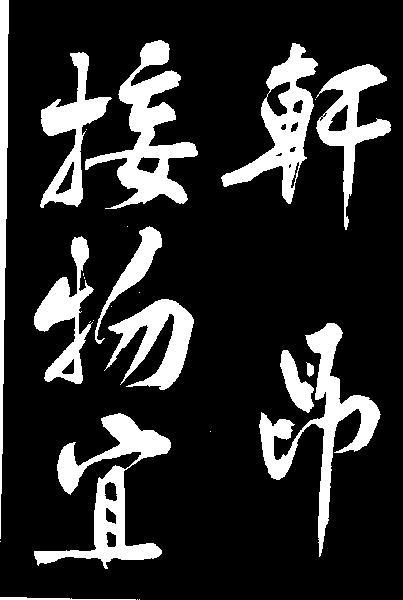 軒昂
接物宜